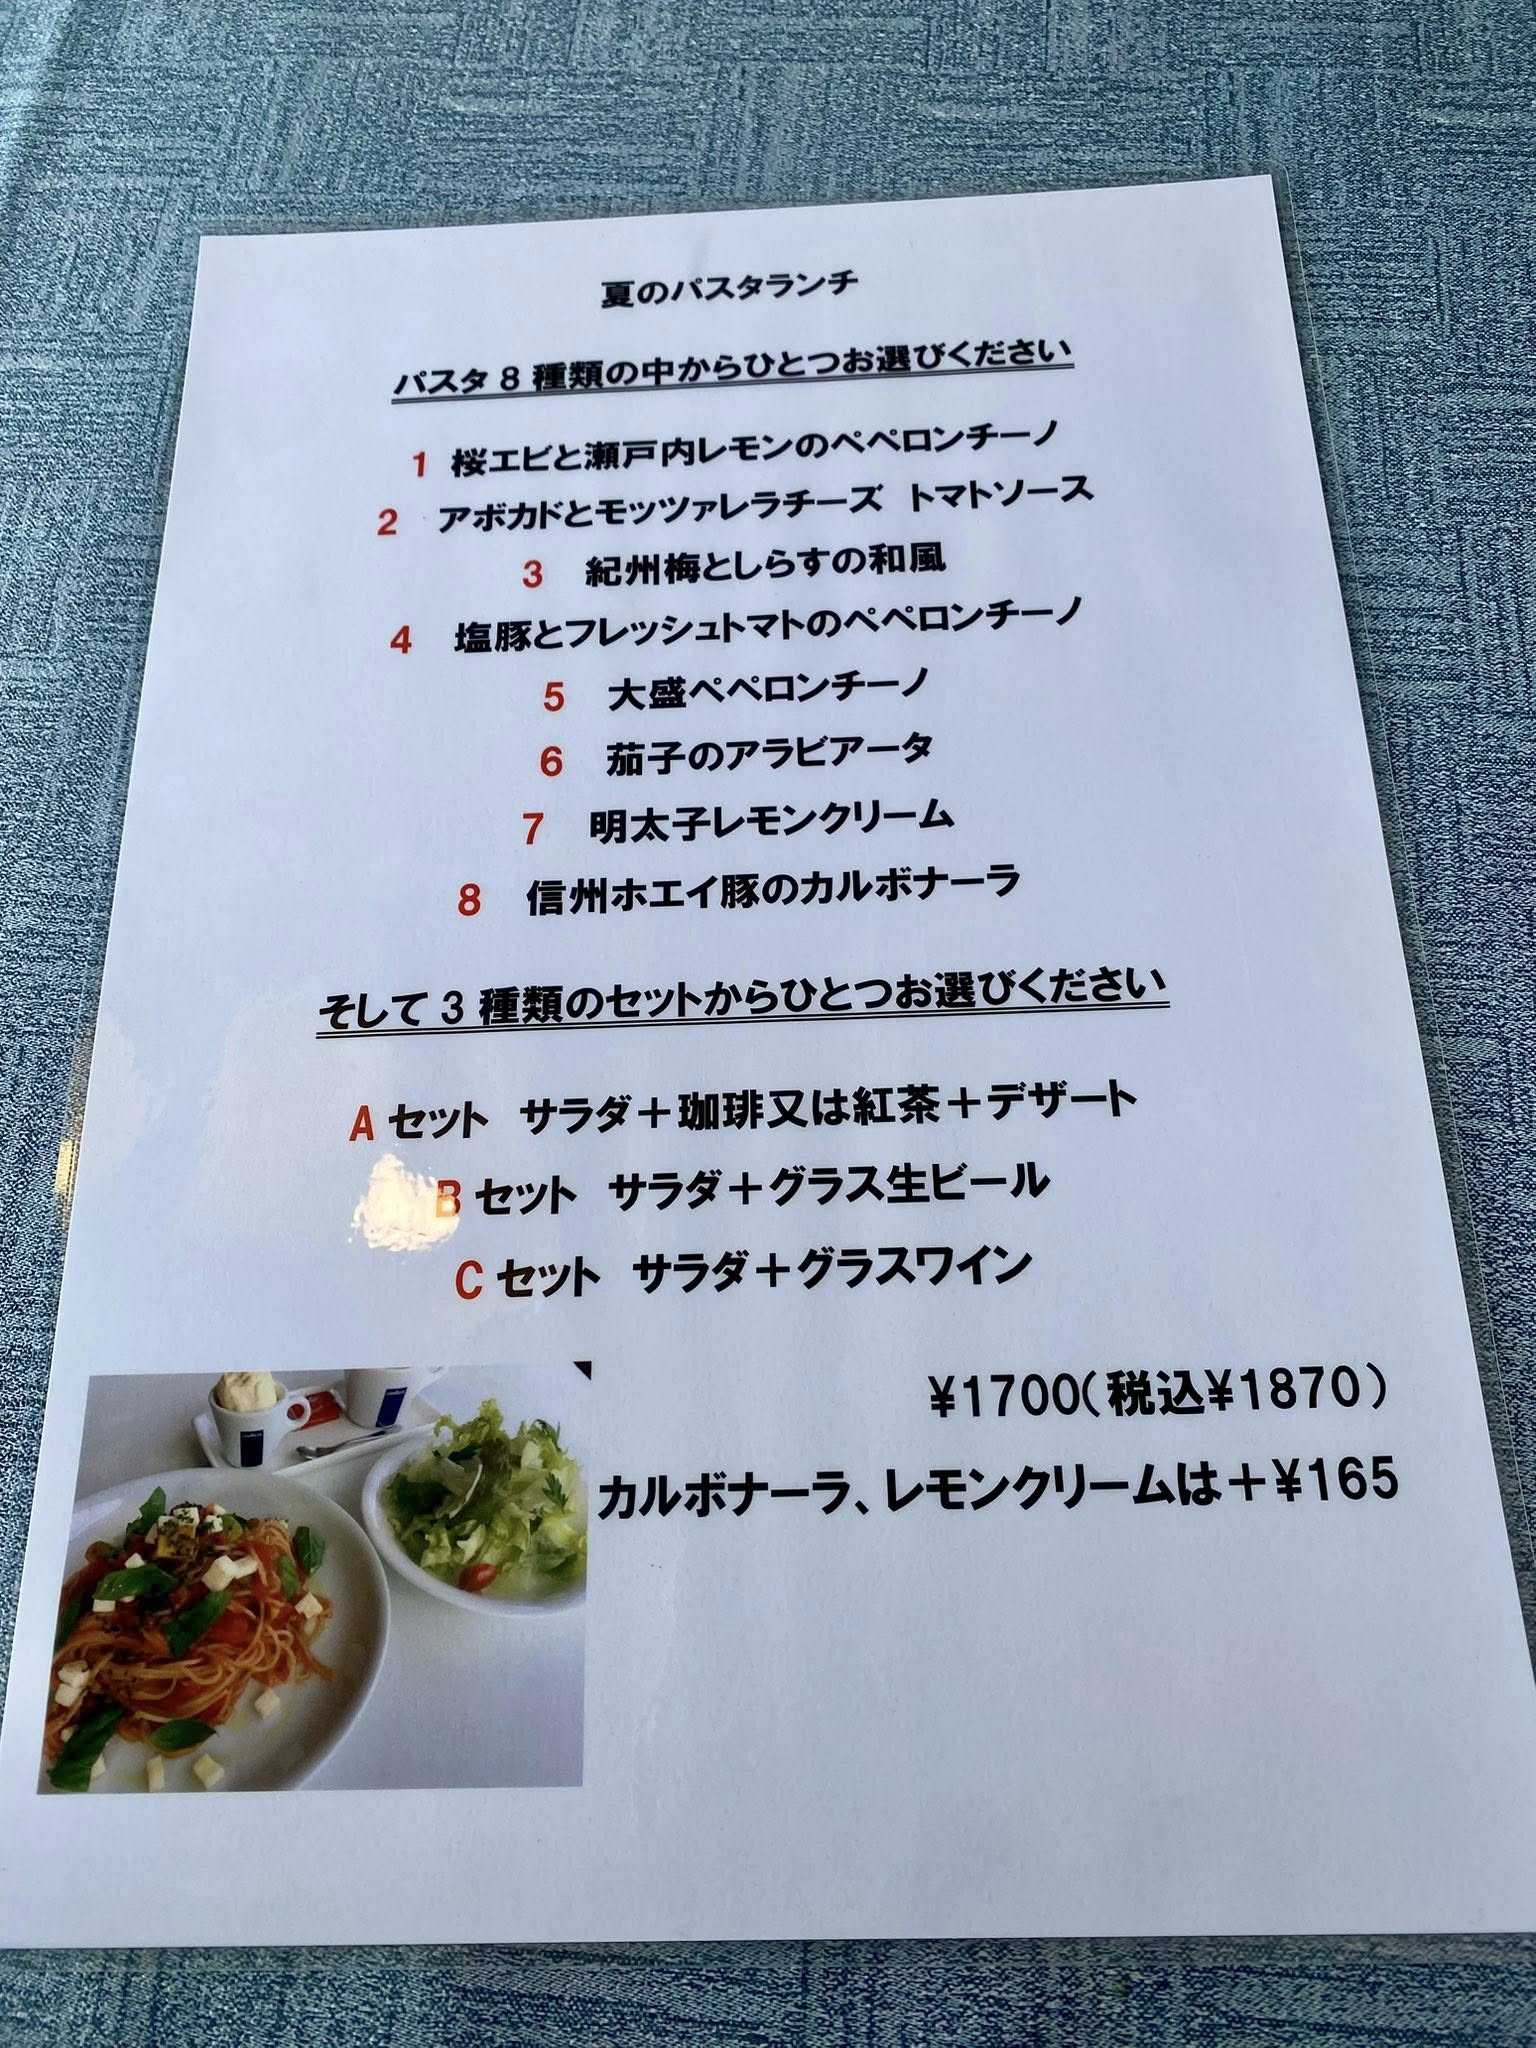 夏のパスタランチ
パスタ 8 種類の中からひとつお選びください
1 桜エビと瀬戸内レモンのペペロンチーノ
2 アボカドとモッツァレラチーズ トマトソース
3 紀州梅としらすの和風
4 塩豚とフレッシュトマトのペペロンチーノ
5 大盛ペペロンチーノ
6 茄子のアラビアータ
7 明太子レモンクリーム
8 信州ホエイ豚のカルボナーラ
そして 3 種類のセットからひとつお選びください
A セット サラダ＋珈琲又は紅茶＋デザート
B セット サラダ＋グラス生ビール
C セット サラダ＋グラスワイン
¥1700（税込¥1870）
カルボナーラ、レモンクリームは＋¥165